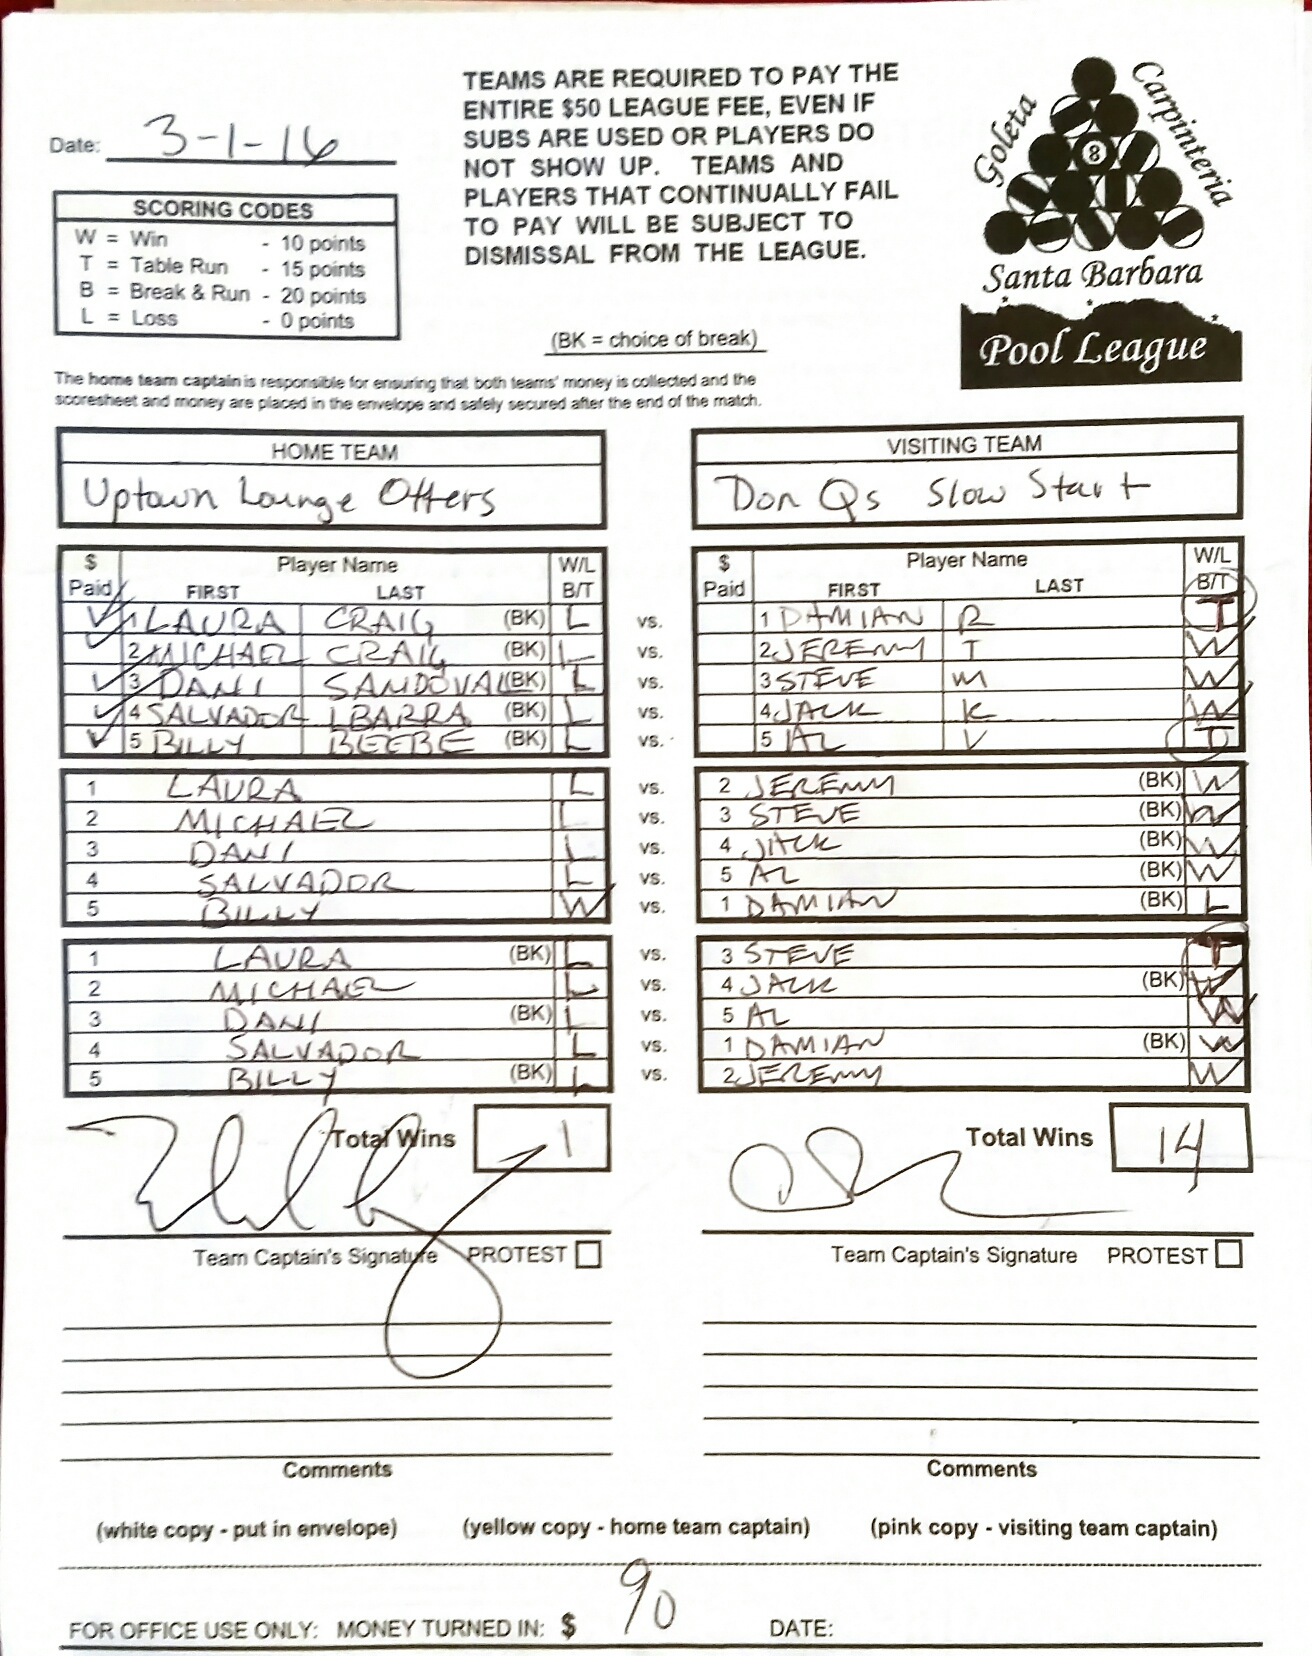 TEAMS ARE REQUIRED TO PAY THE
ENTIRE $50 LEAGUE FEE, EVEN IF
SUBS ARE USED OR PLAYERS DO
NOT SHOW UP. TEAMS AND
PLAYERS THAT CONTINUALLY FAIL
TO PAY WILL BE SUBJECT TO
DISMISSAL FROM THE LEAGUE.
Goleta
Carpinteria
8
Santa Barbara
Pool League
Date: 3-1-16
SCORING CODES
W = Win - 10 points
T = Table Run - 15 points
B = Break & Run - 20 points
L = Loss - 0 points
(BK = choice of break)
The home team captain is responsible for ensuring that both teams' money is collected and the
scoresheet and money are placed in the envelope and safely secured after the end of the match.
HOME TEAM VISITING TEAM
Uptown Lounge Offers Don Qs Slow Start
$ Player Name W/L $ Player Name W/L
Paid FIRST LAST B/T Paid FIRST LAST B/T
1 LAURA CRAIG (BK) L vs. 1 DAMIAN R T
2 MICHAEL CRAIG (BK) L vs. 2 JEREMY T W
3 DANI SANDOVAL (BK) L vs. 3 STEVE M W
4 SALVADOR IBARRA (BK) L vs. 4 JACK K W
5 BILLY BEEBE (BK) L vs. 5 AL V T
1 LAURA L vs. 2 JEREMY (BK) W
2 MICHAEL L vs. 3 STEVE (BK) W
3 DANI L vs. 4 JACK (BK) W
4 SALVADOR L vs. 5 AL (BK) W
5 BILLY W vs. 1 DAMIAN (BK) L
1 LAURA (BK) L vs. 3 STEVE T
2 MICHAEL L vs. 4 JACK (BK) W
3 DANI (BK) L vs. 5 AL W
4 SALVADOR L vs. 1 DAMIAN (BK) W
5 BILLY (BK) L vs. 2 JEREMY W
Total Wins 1 Total Wins 14
Team Captain's Signature PROTEST Team Captain's Signature PROTEST
Comments Comments
(white copy - put in envelope) (yellow copy - home team captain) (pink copy - visiting team captain)
FOR OFFICE USE ONLY: MONEY TURNED IN: $ 90 DATE: